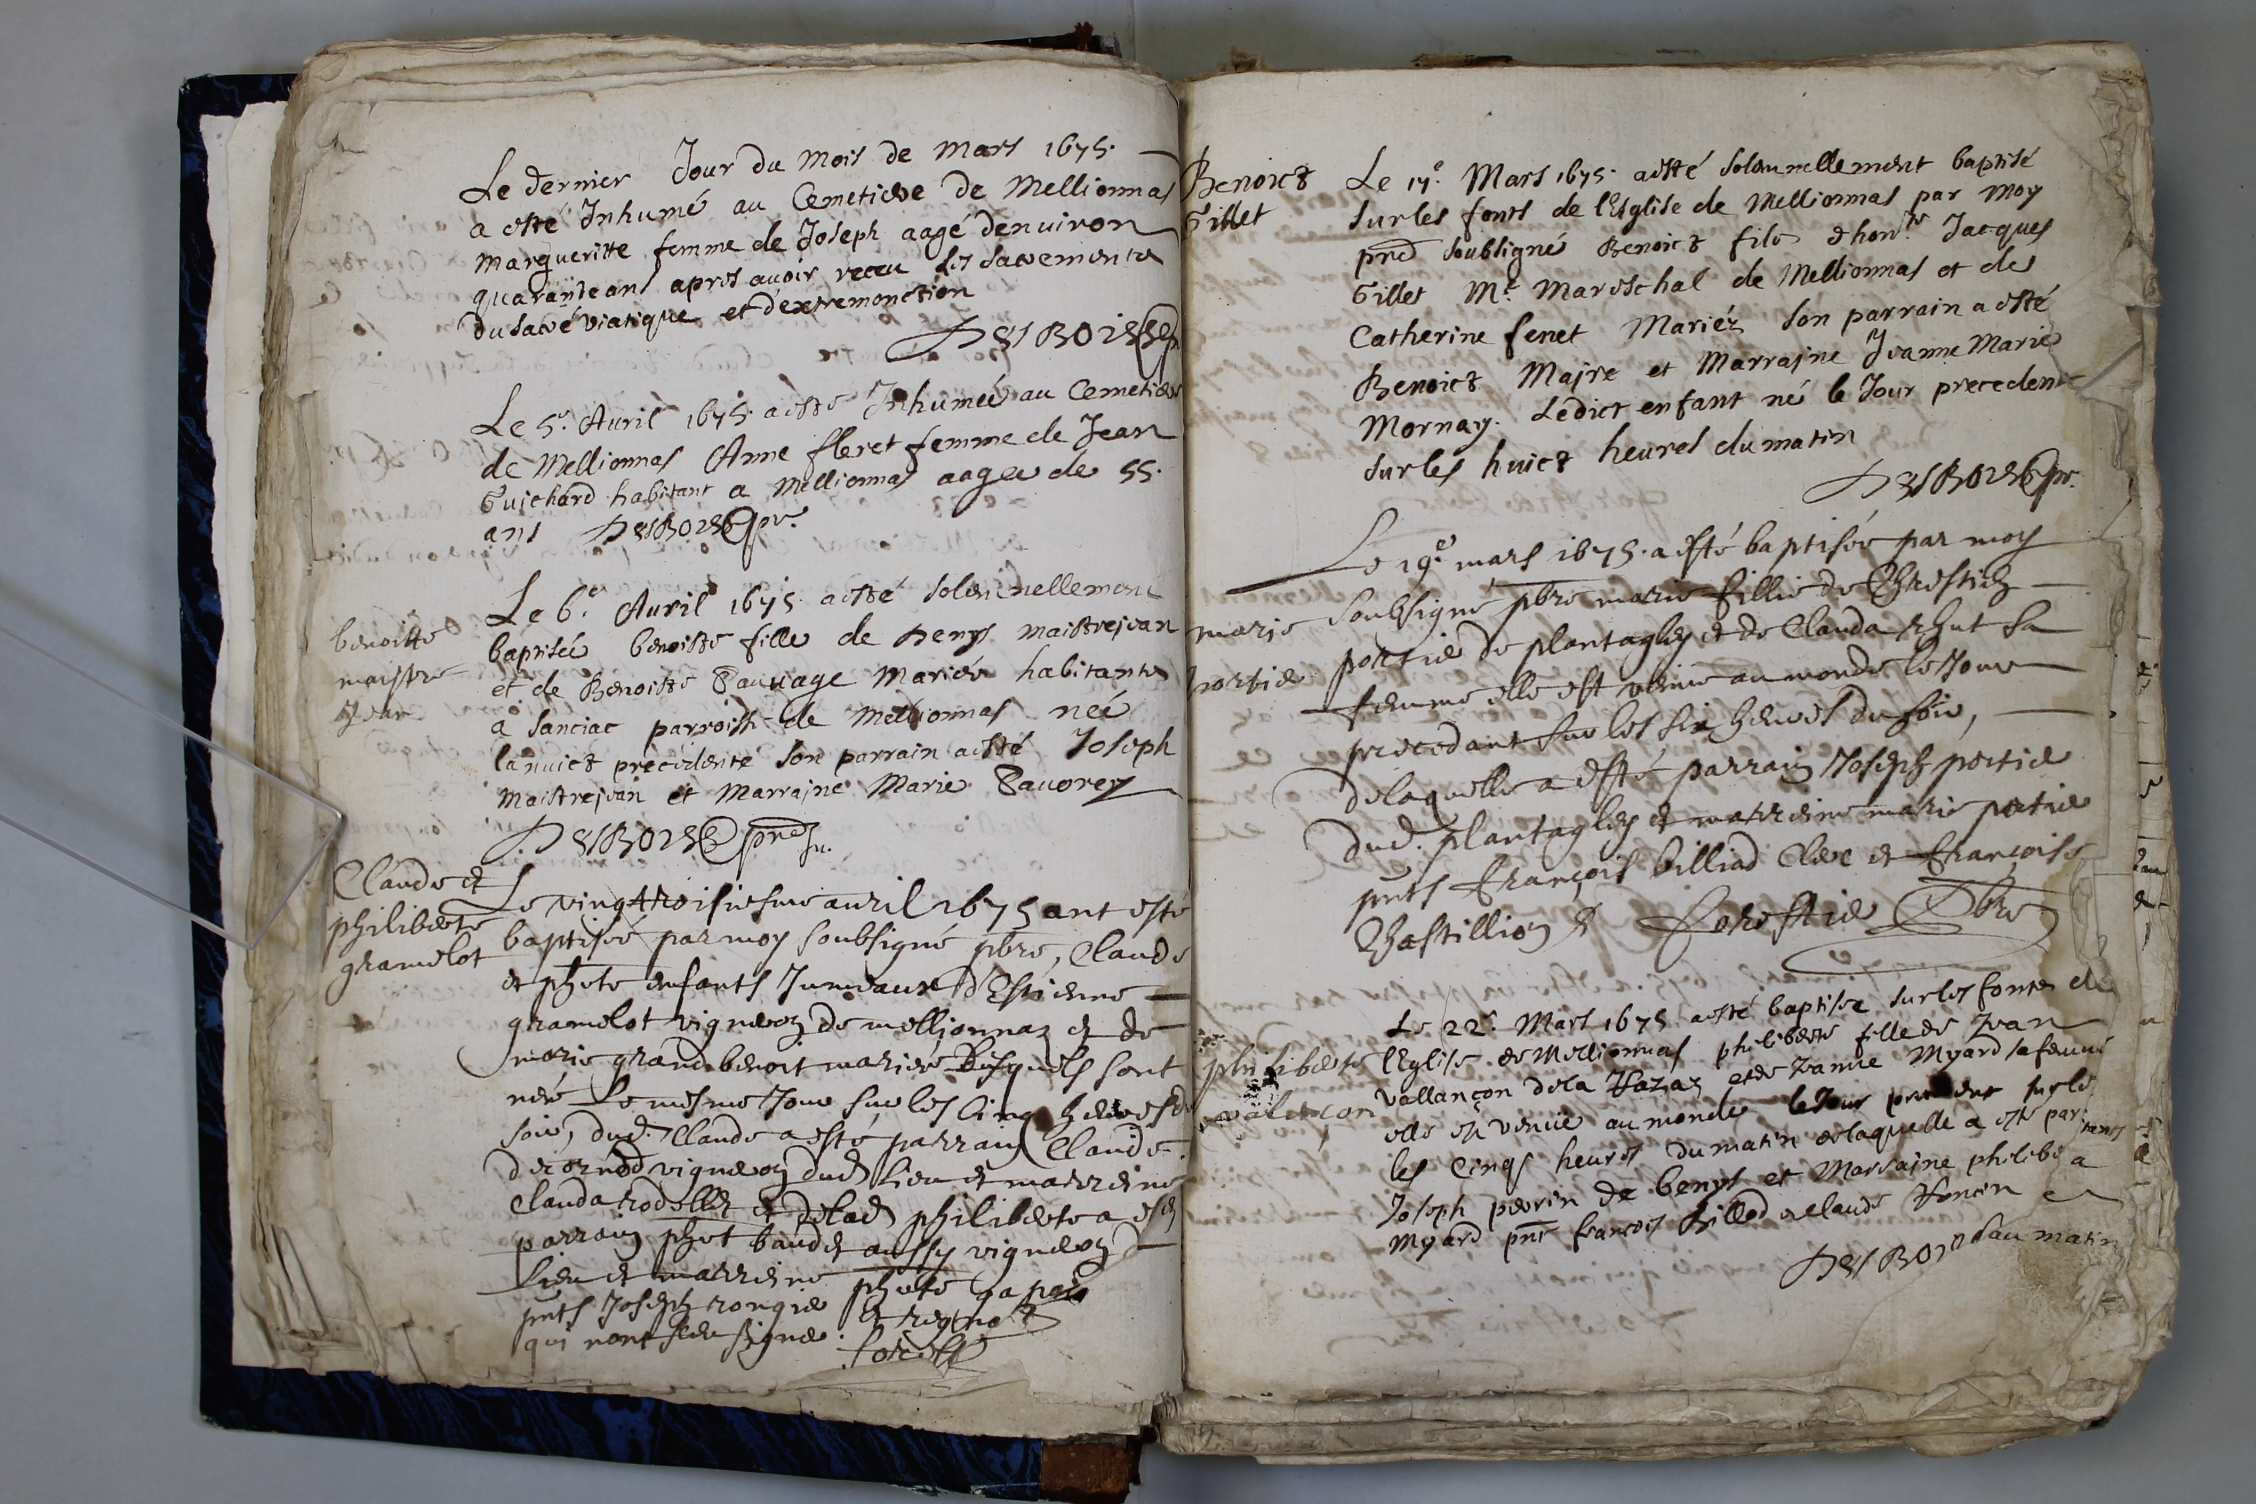 Le dernier Jour du Mois de Mars 1675.
a esté Inhumé au Cemetiere de Mellionnas
Margueritte femme de Joseph aagé denuiron
quarante ans apres auoir receu les sacrements
du sacré viatique et d'extremonction
DESBOIS pr
Le 5e. Auril 1675. a esté Inhumée au Cemetiere
de Mellionnas Anne fleret femme de Jean
Guichard habitant a Mellionnas aagee de 55.
ans DESBOIS pr.
benoiste
maistre
Jean
Le 6e. Auril 1675 a esté solennellement
baptisée benoiste fille de Denys maistrejean
et de Benoiste Sauuage Mariés habitants
a Sanciac parroisse de Mellionnas née
la nuict precedente son parrain a esté Joseph
Maistrejean et Marrajne Marie Sauorey
DESBOIS
Claude et
philiberte
gramelot
Le vingtroisiesme auril 1675 ont esté
baptisés par moy soubsigné pbre, Claude
et phte enfants Jumeaux d'Estienne
gramelot vigneron de mellionnaz et de
marie grand benoit mariés lesquels sont
nés le mesme Jour sur les cinq heures du
soir, dud. Claude a esté parrain Claude
vigneron dud lieu et marreine
Clauda et de lad philiberte a esté
parrain phet baudet aussy vigneron d
lieu et marreine phete
pnts Joseph
qui nont sceu signer.
Benoict
Gillet
Le 17e. Mars 1675. a esté solennellement baptisé
sur les fonts de l'Esglise de Mellionnas par Moy
soubsigné Benoict fils d'honte Jacques
Gillet Me. Mareschal de Mellionnas et de
Catherine fenet Mariéz son parrain a esté
Benoict Majre et Marrajne Jeanne Marie
Mornay. Ledict enfant né le Jour precedent
sur les huict heures du matin
DESBOIS pr.
marie
portier
Le 19e. mars 1675. a esté baptisée par moy
soubsigné pbre marie fillie de Chrestien
portier de plantagley et de Clauda sa
femme elle est venue au monde le Jour
precedant sur les six heures du soir,
de laquelle a esté parrain Joseph portier
dud. plantagley et marreine marie portier
pnts françois billiad Clerc et françoise
Chastillion Forestier Pbre
philiberte
valençon
Le 22e. Mars 1675 a esté baptisée sur les fonts de
l'Eglise de Mellionnas philiberte fille de Jean
Vallançon de la et de Jeanne Myard sa femme
elle est venüe au monde le Jour precedent sur le
les cinqs heures du matin de laquelle a esté par
Joseph perrin de benys et Marraine philibe a
Myard pnt françois billod et claude
DESBOIS